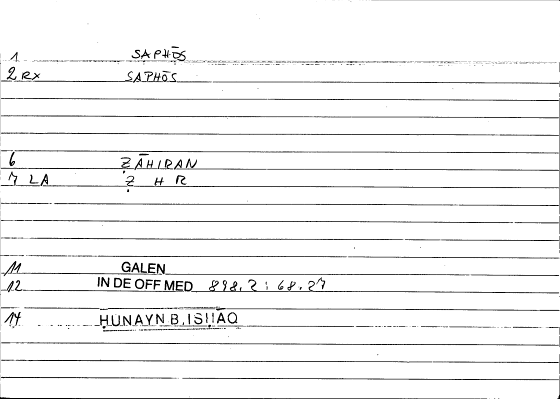 1 SAPHŌS
2 RX SAPHŌS
6 ẒĀHIRAN
7 LA Ẓ H R
11 GALEN
12 IN DE OFF MED 898.2 : 68.27
14 ḤUNAYN B. ISḤAQ